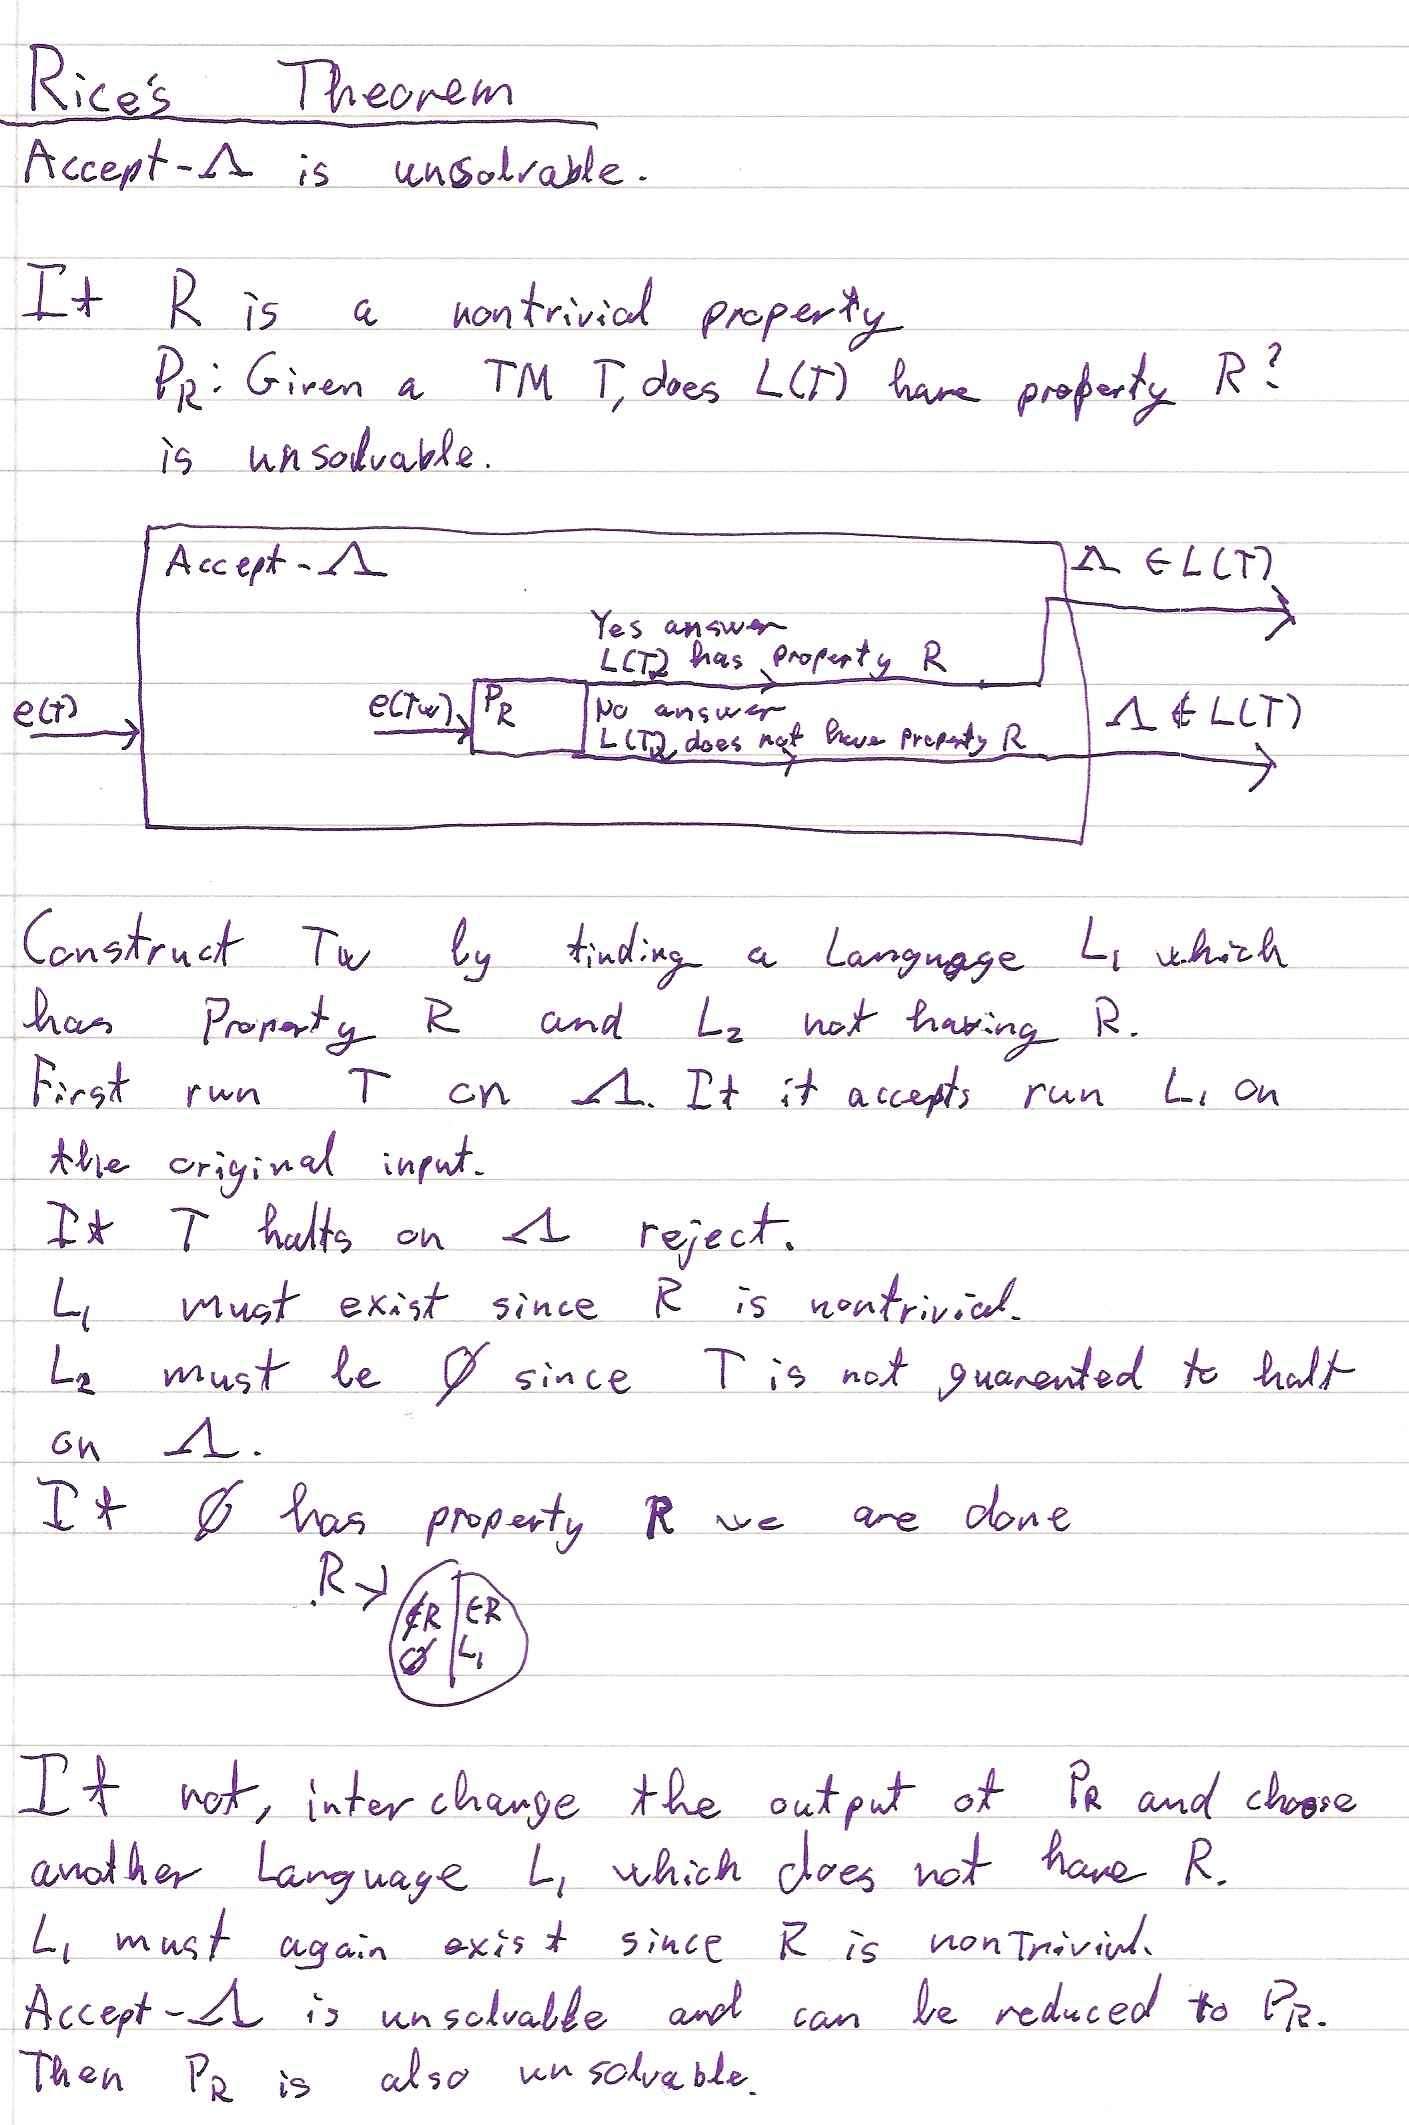 Rice's Theorem
Accept-Λ is unsolvable.
If R is a nontrivial property
PR: Given a TM T, does L(T) have property R?
is unsolvable.
Accept-Λ
Λ ∈ L(T)
Yes answer
L(T2) has property R
e(T)
e(Tw)
PR
No answer
L(T2) does not have property R
Λ ∉ L(T)
Construct Tw by finding a Language L1 which
has Property R and L2 not having R.
First run T on Λ. If it accepts run L1 on
the original input.
If T halts on Λ reject.
L1 must exist since R is nontrivial.
L2 must be Ø since T is not guarented to halt
on Λ.
If Ø has property R we are done
R
∉R ∈R
Ø L1
If not, interchange the output of PR and choose
another Language L1 which does not have R.
L1 must again exist since R is nonTrivial.
Accept-Λ is unsolvable and can be reduced to PR.
Then PR is also unsolvable.